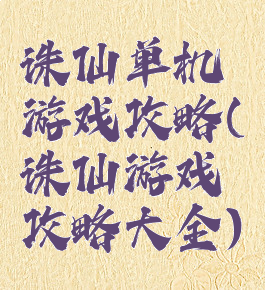 诛仙单机
游戏攻略(
诛仙游戏
攻略大全)